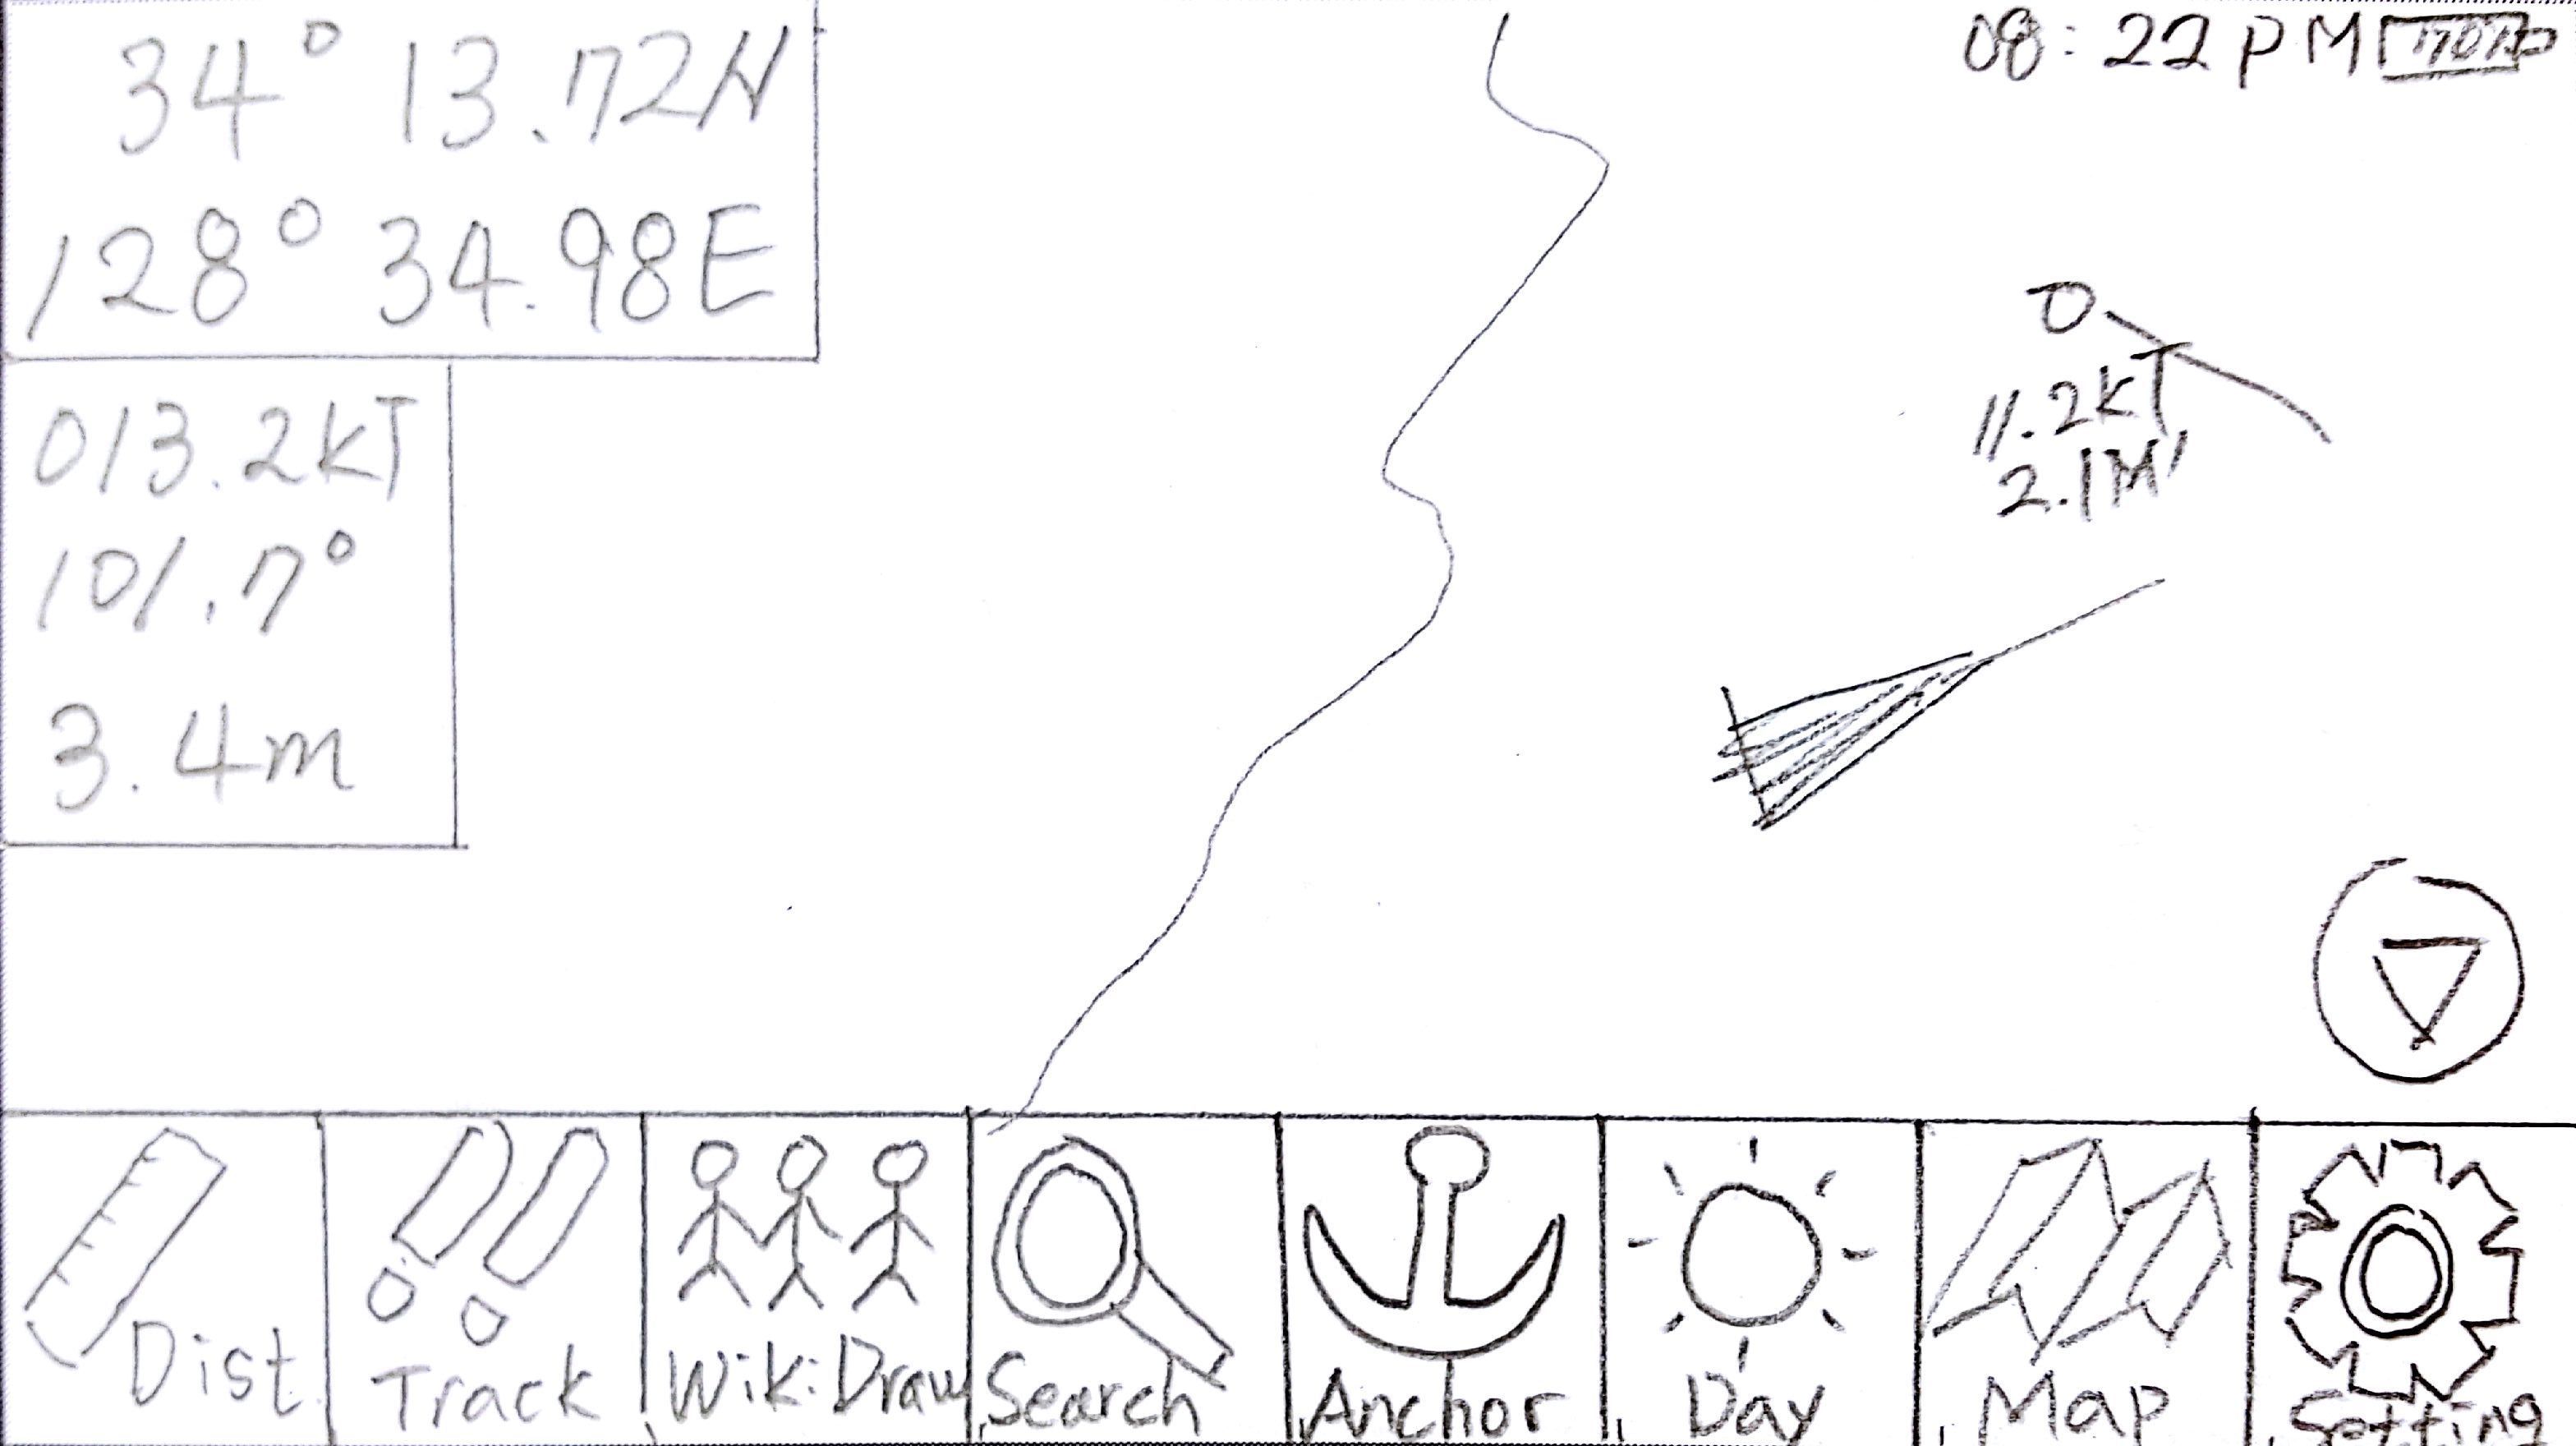 34° 13.72N
128° 34.98E
08:22 PM
013.2kT
101.7°
3.4m
11.2kT
2.1M'
Dist
Track
Wiki Draw
Search
Anchor
Day
Map
Setting